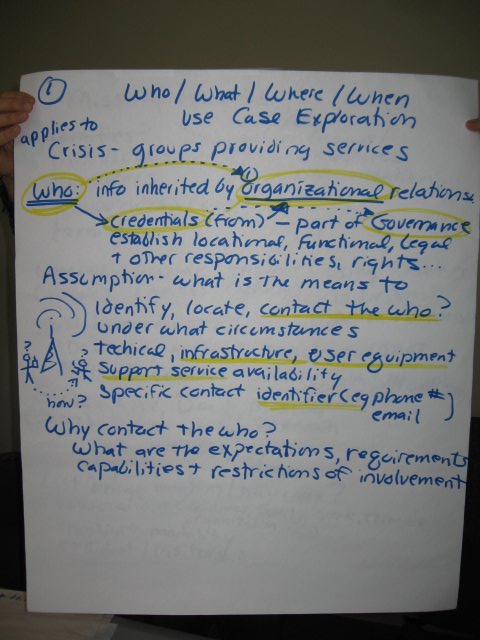 1 Who / What / Where / When
Use Case Exploration
applies to
Crisis - groups providing services
1
Who: info inherited by organizational relations.
credentials (from) - part of Governance
establish locational, functional, legal
+ other responsibilities, rights...
Assumption - what is the means to
Identify, locate, contact the who?
under what circumstances
Techical, infrastructure, user equipment
Support service availability
Specific contact identifier (eg phone #
email)
? ?
how?
Why contact the who?
What are the expectations, requirements
capabilities + restrictions of involvement